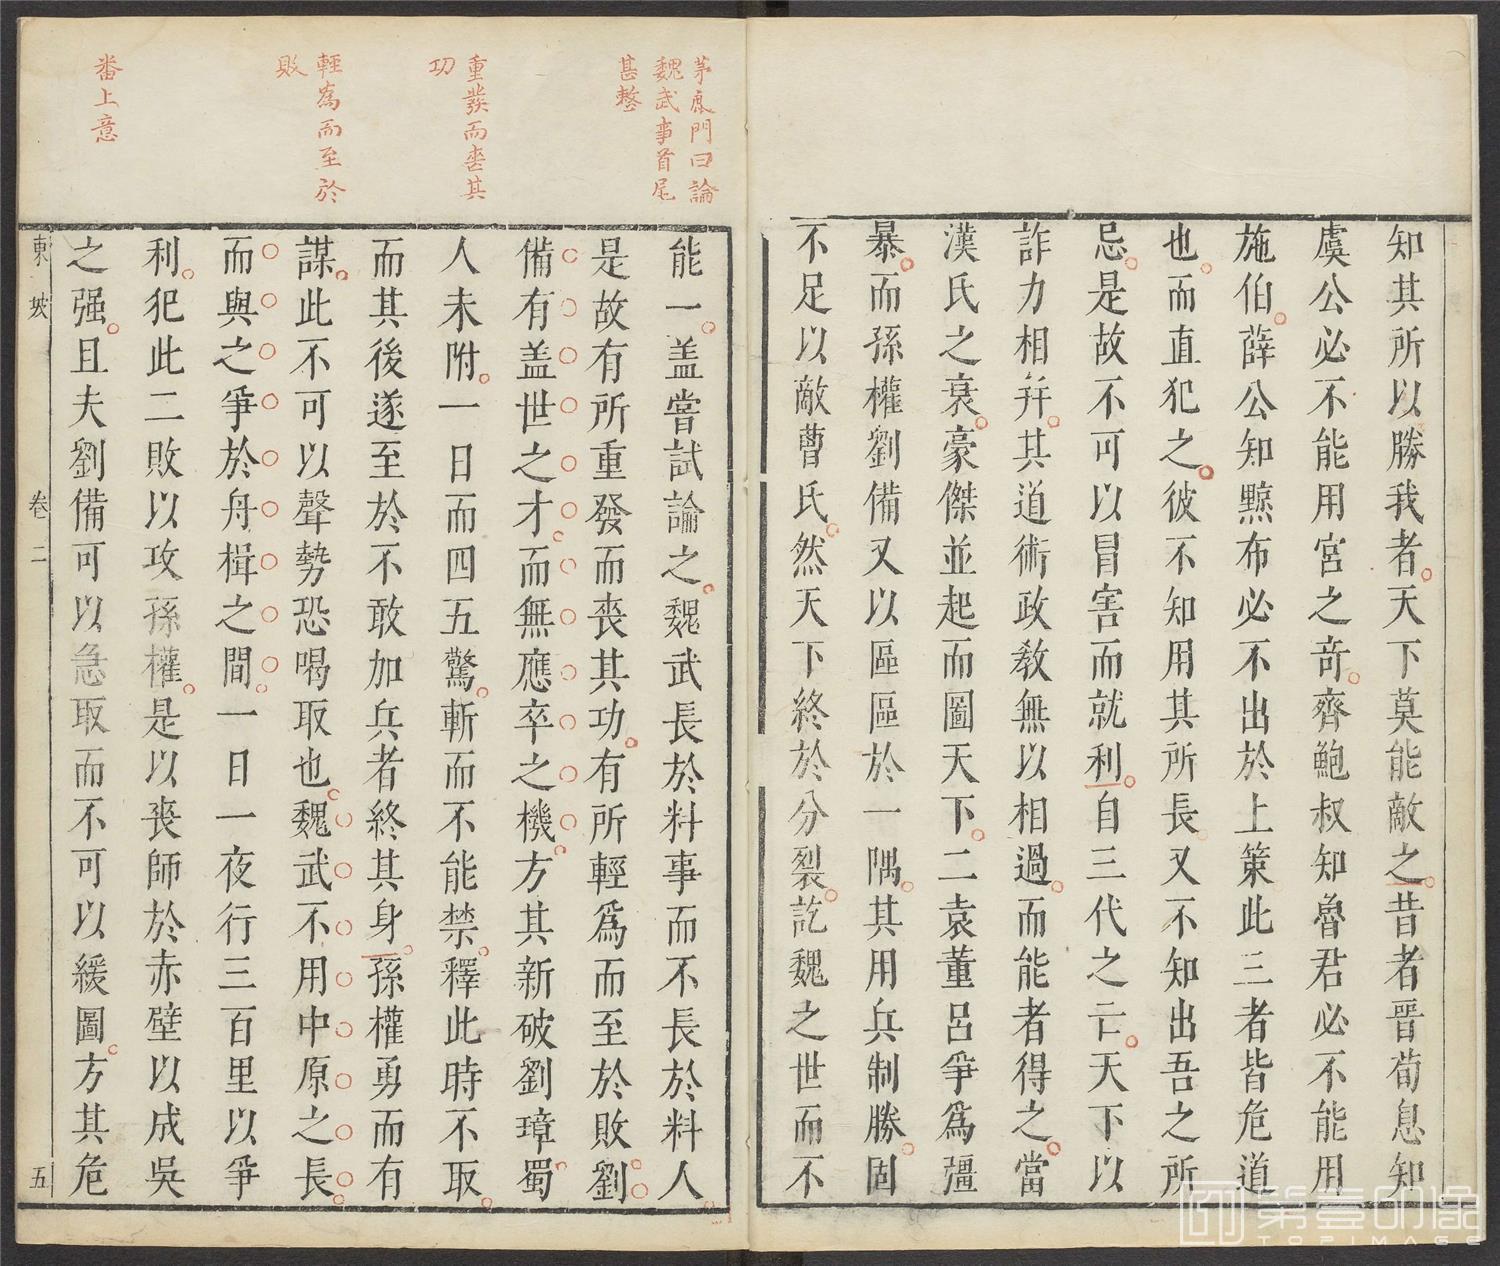 知其所以勝我者天下莫能敵之昔者晉荀息知
虞公必不能用宮之奇齊鮑叔知魯君必不能用
施伯薛公知黥布必不出於上策此三者皆危道
也而直犯之彼不知用其所長又不知出吾之所
忌是故不可以冒害而就利自三代之亡天下以
詐力相并其道術政教無以相過而能者得之當
漢氏之衰豪傑並起而圖天下二袁董呂爭為彊
暴而孫權劉備又以區區於一隅其用兵制勝固
不足以敵曹氏然天下終於分裂訖魏之世而不
茅鹿門曰論
魏武事首尾
甚整
重發而喪其
功
輕為而至於
敗
番上意
能一盖嘗試論之魏武長於料事而不長於料人
是故有所重發而喪其功有所輕爲而至於敗劉
備有盖世之才而無應卒之機方其新破劉璋蜀
人未附一日而四五驚斬而不能禁釋此時不取
而其後遂至於不敢加兵者終其身孫權勇而有
謀此不可以聲勢恐喝取也魏武不用中原之長
而與之爭於舟楫之間一日一夜行三百里以爭
利犯此二敗以攻孫權是以喪師於赤壁以成吳
之强且夫劉備可以急取而不可以緩圖方其危
東坡 卷二 五
第壹印像
TOPIMAGE